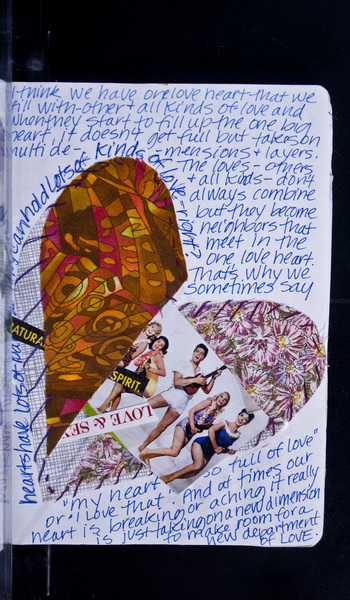 I think we have one love heart that we
fill with other + all kinds of love and
when they start to fill up the one big
heart, it doesn't get full but takes on
multi de-
mensions + layers.
The loves - others
+ all kinds - don't
always combine
but they become
neighbors that
meet in the
one love heart.
That's why we
sometimes say
"my heart is so full of love"
or "I love that". And at times our
heart is breaking or aching it really
is just taking on a new dimension
to make room for a
new department
of LOVE.
hearts have lots of
can hold lots of kinds of love, right?
ATURA
SPIRIT.
LOVE & SEX